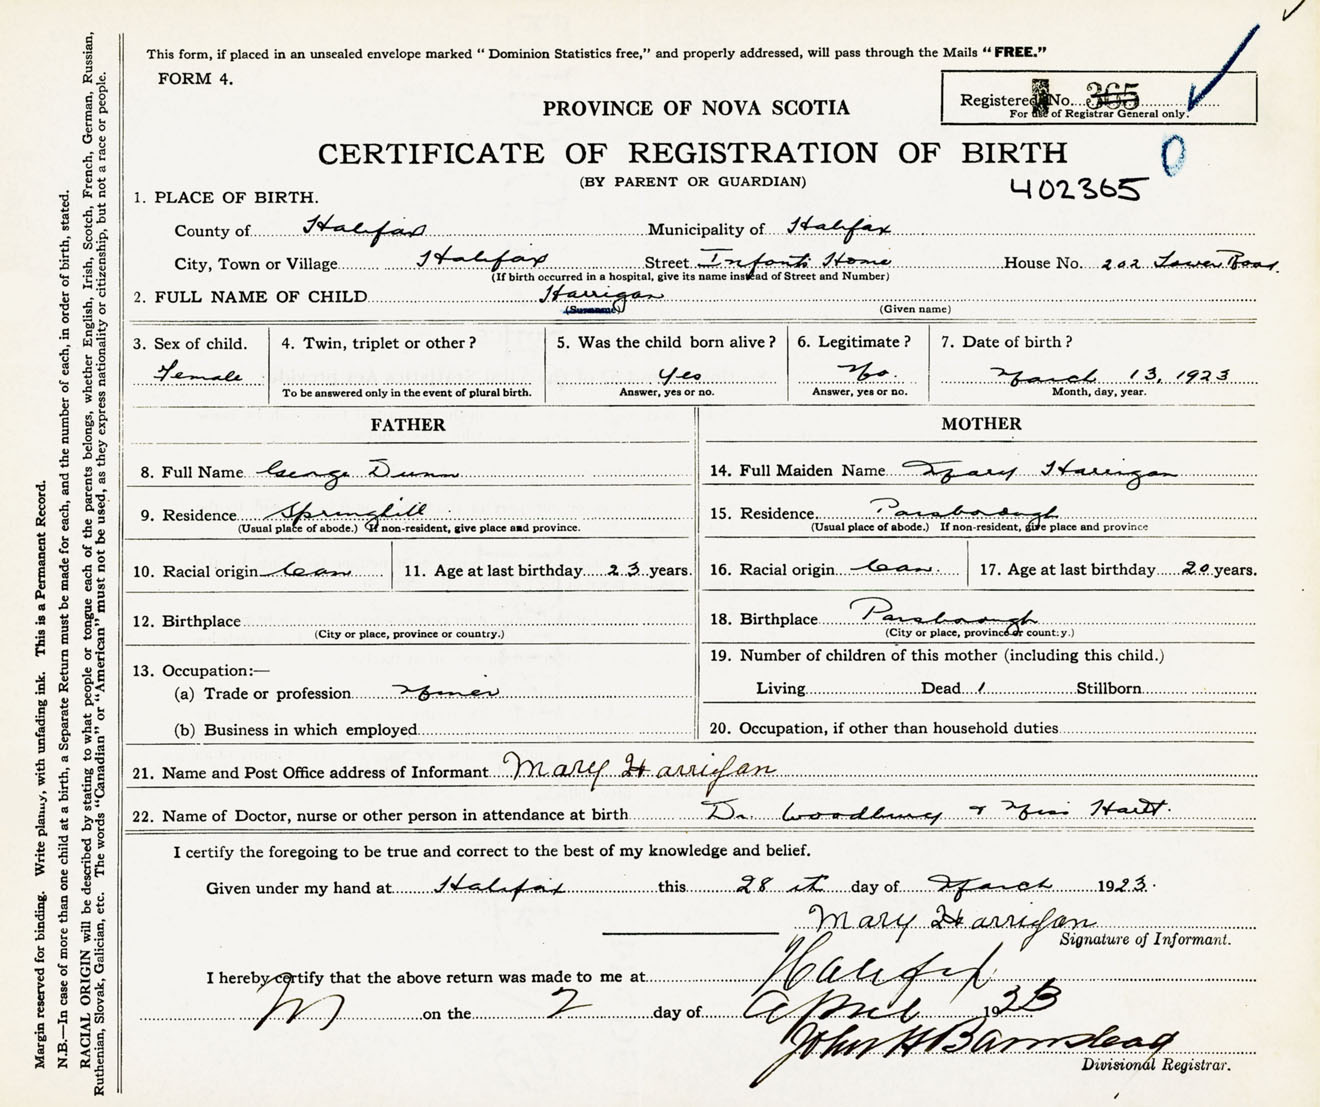 This form, if placed in an unsealed envelope marked “ Dominion Statistics free,” and properly addressed, will pass through the Mails “ FREE.”
FORM 4.
Registered No. 365
For use of Registrar General only.
PROVINCE OF NOVA SCOTIA
CERTIFICATE OF REGISTRATION OF BIRTH
(BY PARENT OR GUARDIAN)
402365
1. PLACE OF BIRTH.
County of Halifax Municipality of Halifax
City, Town or Village Halifax Street Infants Home House No. 202 Tower Road.
(If birth occurred in a hospital, give its name instead of Street and Number)
2. FULL NAME OF CHILD Harrigan
(Surname) (Given name)
3. Sex of child. 4. Twin, triplet or other ? 5. Was the child born alive ? 6. Legitimate ? 7. Date of birth ?
Female Yes No. March 13, 1923
To be answered only in the event of plural birth. Answer, yes or no. Answer, yes or no. Month, day, year.
FATHER MOTHER
8. Full Name George Dunn 14. Full Maiden Name Mary Harrigan
9. Residence Springhill 15. Residence. Parsborough
(Usual place of abode.) If non-resident, give place and province. (Usual place of abode.) If non-resident, give place and province
10. Racial origin Can 11. Age at last birthday 23 years. 16. Racial origin Can. 17. Age at last birthday 20 years.
12. Birthplace 18. Birthplace Parsborough
(City or place, province or country.) (City or place, province or country.)
19. Number of children of this mother (including this child.)
13. Occupation:—
(a) Trade or profession Miner Living Dead 1 Stillborn
(b) Business in which employed 20. Occupation, if other than household duties
21. Name and Post Office address of Informant Mary Harrigan
22. Name of Doctor, nurse or other person in attendance at birth Dr. Woodbury & Miss Hartt.
I certify the foregoing to be true and correct to the best of my knowledge and belief.
Given under my hand at Halifax this 28 th day of March 1923.
Mary Harrigan
Signature of Informant.
I hereby certify that the above return was made to me at Halifax
on the 2 day of April 1923
John H Barnstead
Divisional Registrar.
Margin reserved for binding. Write plainly, with unfading ink. This is a Permanent Record.
N.B.—In case of more than one child at a birth, a Separate Return must be made for each, and the number of each, in order of birth, stated.
RACIAL ORIGIN will be described by stating to what people or tongue each of the parents belongs, whether English, Irish, Scotch, French, German, Russian,
Ruthenian, Slovak, Galician, etc. The words “Canadian” or “American” must not be used, as they express nationality or citizenship, but not a race or people.